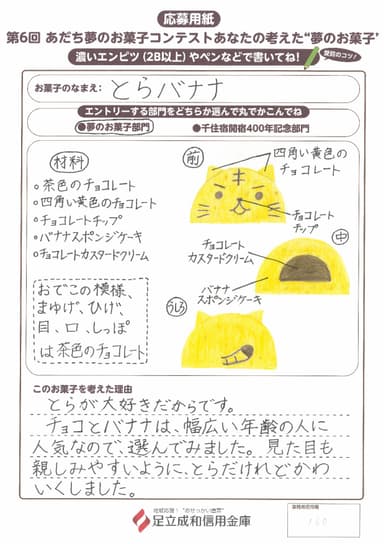 応募用紙
第6回 あだち夢のお菓子コンテストあなたの考えた“夢のお菓子”
濃いエンピツ（2B以上）やペンなどで書いてね！
受賞のコツ！
お菓子のなまえ： とらバナナ
エントリーする部門をどちらか選んで丸でかこんでね
●夢のお菓子部門
●千住宿開宿400年記念部門
材料
○茶色のチョコレート
○四角い黄色のチョコレート
○チョコレートチップ
○バナナスポンジケーキ
○チョコレートカスタードクリーム
おでこの模様、
まゆげ、ひげ、
目、口、しっぽ
は茶色のチョコレート
前
四角い黄色の
チョコレート
チョコレート
チップ
中
チョコレート
カスタードクリーム
バナナ
スポンジケーキ
うしろ
このお菓子を考えた理由
とらが大好きだからです。
チョコとバナナは、幅広い年齢の人に
人気なので、選んでみました。見た目も
親しみやすいように、とらだけれどかわ
いくしました。
地域応援！“おせっかい宣言”
足立成和信用金庫
160